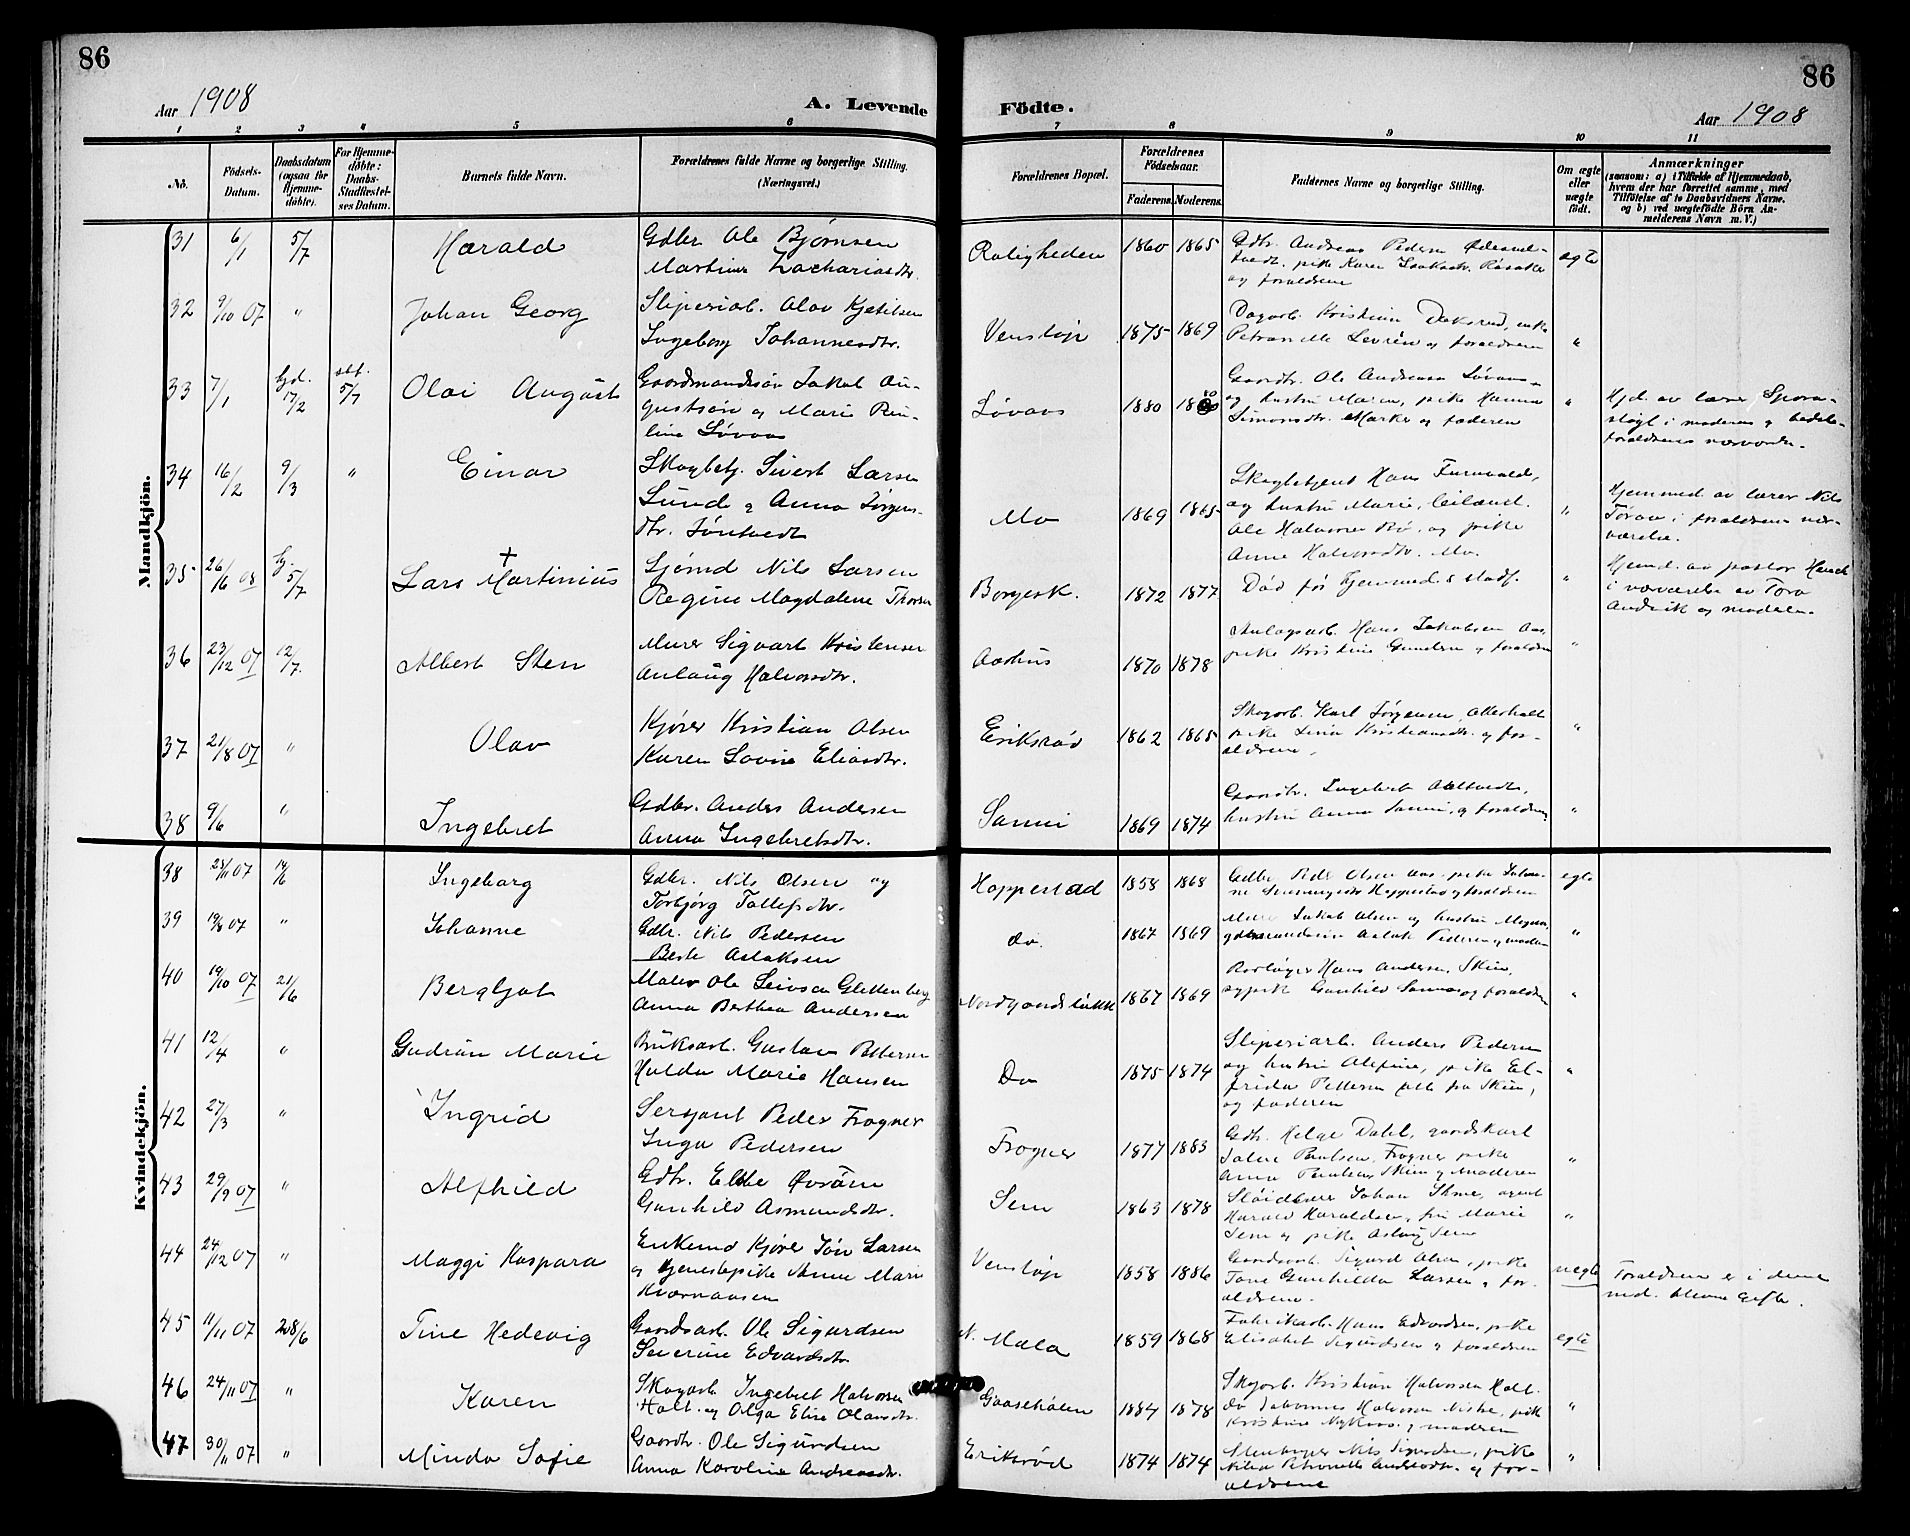 86
86
Aar 1908
A. Levende
Födte.
Aar 1908
1 2 3 4 5 6 7 8 9 10 11
No.
Födsels-
Datum.
Daabsdatum
(ogsaa for
Hjemme-
döbte).
For Hjemme-
döbte:
Daabs-
Stadfæstel-
ses Datum.
Barnets fulde Navn.
Forældrenes fulde Navne og borgerlige Stilling.
(Næringsvei.)
Forældrenes Bopæl.
Forældrenes
Födselsaar.
Faderens. Moderens.
Faddernes Navne og borgerlige Stilling.
Om ægte
eller
uægte
födt.
Anmærkninger
(saasom: a) i Tilfælde af Hjemmedaab,
hvem der har forrettet samme, med
Tilföielse af to Daabsvidners Navne.
og b) ved uægtefödte Börn An-
melderens Navn m. V.)
Mandkjön.
31 6/1 5/7 Harald
Gdbr. Ole Bjørnsen
Martine Zachariasdtr.
Roligheden 1860 1865
Gdbr. Andreas Pedersen
tvedt. pike Karen Isaksdtr.
og forældrene
ægte
32 9/10 07 " Johan Georg
Sliperiarb. Olav Kjetilsen
Ingeborg Johannesdtr.
Venstøp 1875 1869
Dagarb. Kristian enke
Petronelle og forældrene
"
33 7/1 hjd. 17/2 stf. 5/7 Olai August
Gaardmandssøn Jakob Au-
gustsøn og Marie
Løvaas
Løvaas 1880 1880
Gaardbr. Ole Andersen Løvaas
og hustru Maren, pike Hanna
Simonsdtr. Marker og faderen
"
Hjd. av lærer
i moderens og bedste-
forældrenes nærværelse.
34 16/2 9/3 " Einar
Skogbetj. Sivert Larsen
Lund og Anna Jørgens-
dtr.
Mo 1869 1865
Skogbetjent Hans
og hustru Marie,
Ole Halvorsen og pike
Anne Halvorsdtr. Mo.
"
Hjemmed. av lærer Nils
i forældrenes nær-
værelse.
35 26/6 08 hj. 5/7 Lars Martinius +
Sjømd Nils Larsen
Regine Magdalene Thorsen
Borgesk. 1872 1877
Død før hjemmed.s stadf.
"
Hjemd. av pastor
i nærværelse av Tora
og moderen.
36 23/12 07 12/7. Albert Sten
Murer Sigvart Kristensen
Anlaug Halvorsdtr.
Aarhus 1870 1878
Anlægsarb. Hans Jakobsen Aas,
pike Kristine Gundersen og forældrene
"
37 21/8 07 " Olav
Kjører Kristian Olsen
Karen Lovise Eliasdtr.
Eriksrød 1862 1865
Skogarb. Karl Jørgensen,
pike Lina Kristiansdtr. og for-
ældrene.
"
38 9/6 " Ingebret
Gdbr. Anders Andersen
Anna Ingebretsdtr.
Sanni 1869 1874
Gaardbr. Ingebret
hustru Anna Sanni, og forældrene
"
Kvindekjön.
38 25/11 07 14/6 Ingeborg
Gdbr. Nils Olsen og
Torbjørg Tollefsdtr.
Hoppestad 1858 1868
Gdbr. Peder Olsen Aas. pike
Hoppestad og forældrene
egte
39 19/9 07 " Johanne
Gdbr. Nils Pedersen
Berte Aslaksen
do. 1867 1869
Murer Jakob Olsen og hustru
Aslak Pedersen og moderen
"
40 19/10 07 21/6 Bergljot
Maler Ole
Anna Berthea Andersen
1867 1869
Hans Andersen, Skien,
sypike Gunhild og forældrene
"
41 12/4 " Gudrun Marie
Bruksarb. Gustav Pettersen
Hulda Marie Hansen
Do 1875 1874
Sliperiarb. Anders Pedersen
og hustru pike El-
frida Pettersen alle fra Skien,
og faderen
"
42 27/3 " Ingrid
Sersjant Peder Frogner
Inga Pedersen
Frogner 1877 1883
Gdbr. Helge Dahl, gaardskarl
Paulsen, Frogner pike
Anna Paulsen Skien og moderen
"
43 29/9 07 " Alfhild
Gdbr.
Gunhild Asmundsdtr.
Sem 1863 1878
Johan agent
Harald Haraldsen, frk Marie
Sem og pike Aslaug Sem
"
44 24/12 07 " Maggi Kaspara
Enkemd Kjører Jon Larsen
og tjenestepike Anne Marie
Kværnaasen
Venstøp 1858 1886
Gaardsarb. Sigurd Olsen, pike
Tone Gunhilda Larsen og for-
ældrene.
uægte
Forældrene er i denne
md. blevne gifte.
45 11/11 07 28/6 Tine Hedevig
Gaardsarb. Ole Sigurdsen
Severine Edvardsdtr
N. Mæla 1859 1868
Fabrikarb. Hans Edvardsen, pike
Elisabet Sigurdsen og forældrene
egte
46 24/11 07 " Karen
Skogarb Ingebret Halvorsen
Holt. og Olga Elise Olausdtr.
Gaasehølen 1884 1878
Skogarb. Kristian Halvorsen Holt.
do Johannes Halvorsen pike
Kristine og moderen
"
47 30/11 07 " Minda Sofie
Gaardbr. Ole Sigurdsen
Anna Karoline Andreasdtr.
Eriksrød 1874 1874
Nils Sigurdsen, pike
Petronelle og for-
ældrene
"